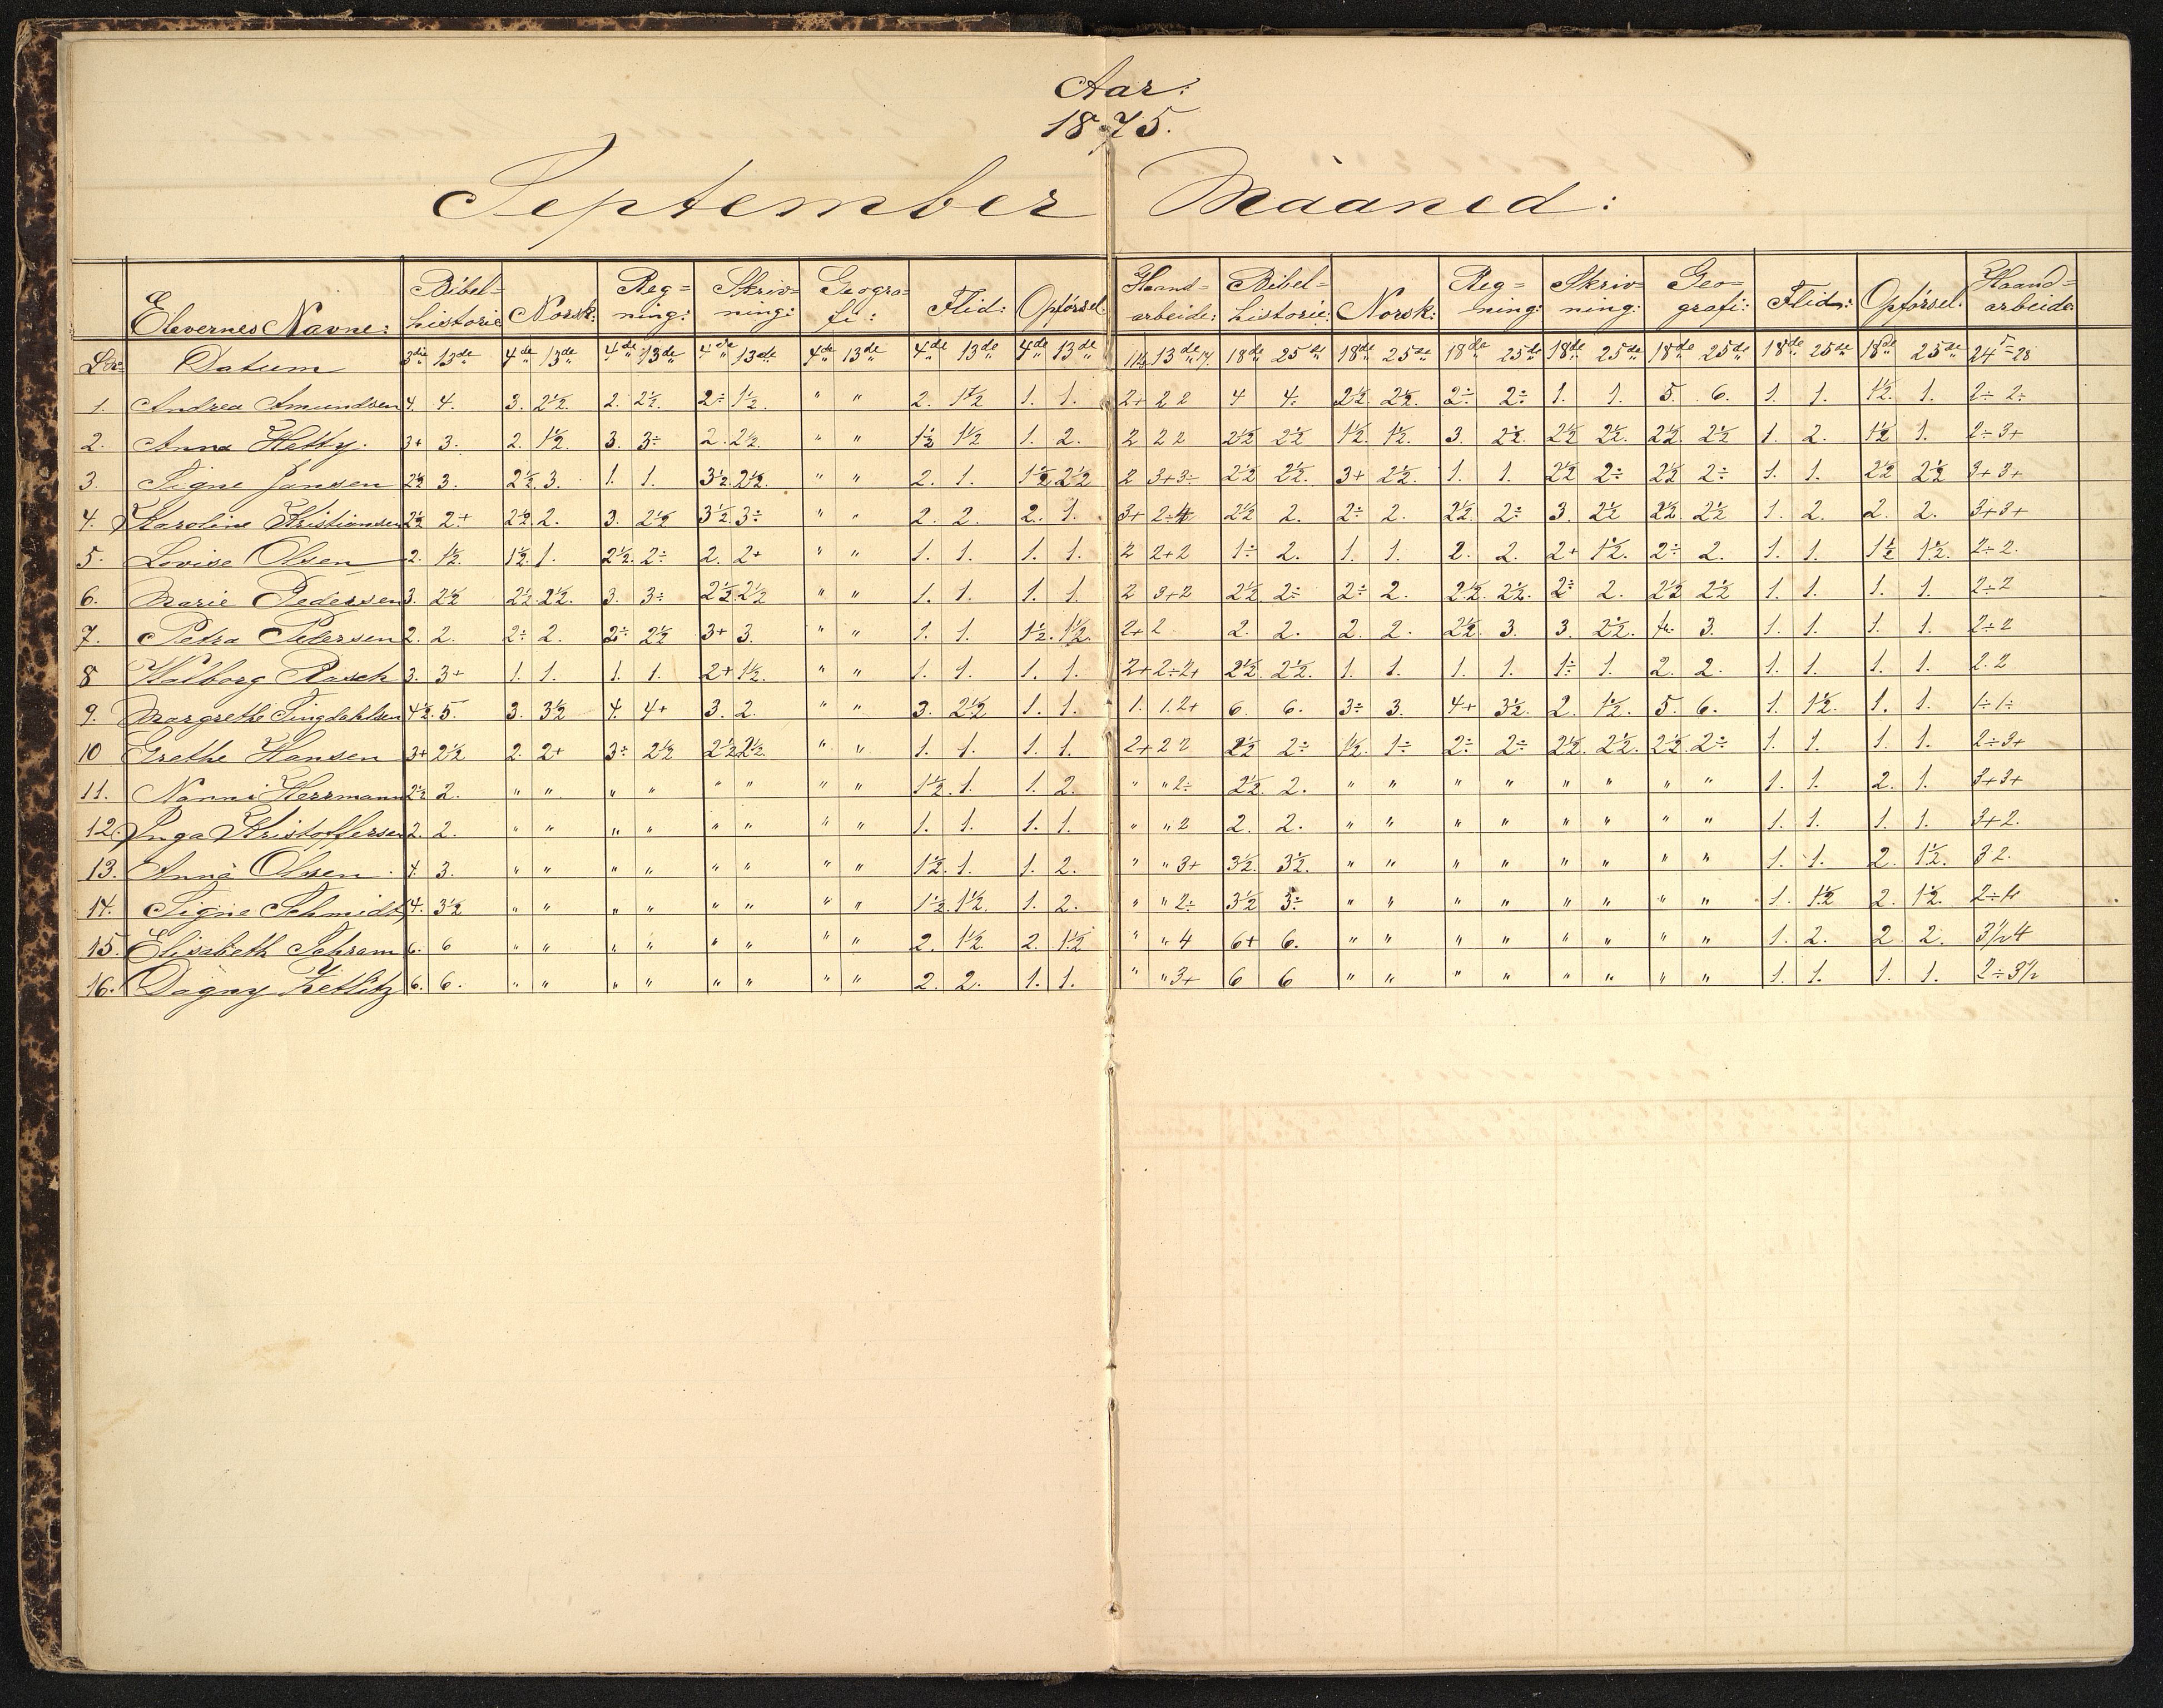 Aar:
1875.
September Maaned:
Elevernes Navne: Bibel= historie Norsk: Reg= ning: Skriv= ning: Geogra= fi: Flid: Opførsel: Haand= arbeide: Bibel= historie: Norsk: Reg= ning: Skriv= ning: Geo= grafi: Flid: Opførsel: Haand= arbeide:
Datum 3die 13de 4de 13de 4de 13de 4de 13de 4de 13de 4de 13de 4de 13de 13de 17. 18de 25de 18de 25de 18de 25de 18de 25de 18de 25de 18de 25de 18de 25de 24=28
1. Andrea Amundsen 4. 4. 3. 2½. 2. 2½. 2÷ 1½. " " 2. 1½ 1. 1. 2+ 2 2 4 4. 2½. 2½. 2÷ 2÷ 1. 1. 5. 6. 1. 1. 1½. 1. 2÷ 2÷
2. Anna Hetty. 3+ 3. 2. 1½. 3. 3÷ 2. 2½. " " 1½ 1½ 1. 2. 2 2 2 2½ 2½ 1½. 1½. 3. 2½. 2½ 2½. 2½. 2½ 1. 2. 1½ 1. 2÷ 3+
3. Signe Jansen 2½ 3. 2½. 3. 1. 1. 3½. 2½. " " 2. 1. 1½. 2½ 2 3+ 3÷ 2½ 2½. 3+ 2½. 1. 1. 2½ 2÷ 2½ 2÷ 1. 1. 2½ 2½ 3+ 3+
4. Karoline Kristiansen 2½ 2+ 2½. 2. 3. 2½ 3½. 3÷ " " 2. 2. 2. 1. 3+ 2÷ 4 2½ 2. 2÷ 2. 2½. 2÷ 3. 2½ 2½. 2½ 1. 2. 2. 2. 3+ 3+
5. Lovise Olsen 2. 1½. 1½. 1. 2½. 2÷ 2. 2+ " " 1. 1. 1. 1. 2 2+ 2 1÷ 2. 1. 1. 2. 2. 2+ 1½. 2÷ 2. 1. 1. 1½ 1½. 2÷ 2.
6. Marie Pedersen 3. 2½ 2½. 2½. 3. 3÷ 2½. 2½ " " 1. 1. 1. 1. 2 3+ 2 2½. 2÷ 2÷ 2. 2½. 2½. 2÷ 2. 2½ 2½ 1. 1. 1. 1. 2÷ 2
7. Petra Petersen 2. 2. 2÷ 2. 2÷ 2½ 3+ 3. " " 1. 1. 1½. 1½. 2+ 2 2. 2. 2. 2. 2½. 3. 3. 2½. 4. 3. 1. 1. 1. 1. 2÷ 2
8 Walborg Rasch 3. 3+ 1. 1. 1. 1. 2+ 1½. " " 1. 1. 1. 1. 2+ 2÷ 2+ 2½. 2½. 1. 1. 1. 1. 1÷ 1. 2. 2. 1. 1. 1. 1. 2. 2
9. Margrethe Tingdahlsen 4½. 5. 3. 3½ 4. 4+ 3. 2. " " 3. 2½ 1. 1. 1. 1. 2+ 6. 6. 3÷ 3. 4+ 3½. 2. 1½. 5. 6. 1. 1½. 1. 1. 1÷ 1÷
10 Grethe Hansen 3+ 2½ 2. 2+ 3÷ 2½ 2½ 2½. " " 1. 1. 1. 1. 2+ 2 2 2½ 2÷ 1½. 1÷ 2÷ 2÷ 2½. 2½. 2½ 2÷ 1. 1. 1. 1. 2÷ 3+
11. Nanni Herrmann 2½ 2. " " " " " " " " 1½. 1. 1. 2. " " 2÷ 2½. 2. " " " " " " " " 1. 1. 2. 1. 3+ 3+
12. Inga Kristoffersen 2. 2. " " " " " " " " 1. 1. 1. 1. " " 2 2. 2. " " " " " " " " 1. 1. 1. 1. 3+ 2.
13. Anna Olsen 4. 3. " " " " " " " " 1½. 1. 1. 2. " " 3+ 3½. 3½. " " " " " " " " 1. 1. 2. 1½. 3 2.
14. Signe Schmidt 4. 3½ " " " " " " " " 1½. 1½. 1. 2. " " 2÷ 3½ 3÷ " " " " " " " " 1. 1½ 2. 1½. 2÷ 4
15. Elisabeth Schram 6. 6 " " " " " " " " 2. 1½. 2. 1½ " " 4 6+ 6. " " " " " " " " 1. 2. 2. 2. 3½ 4
16. Dagny Zetlitz 6. 6. " " " " " " " " 2. 2. 1. 1. " " 3+ 6 6 " " " " " " " " 1. 1. 1. 1. 2÷ 3½